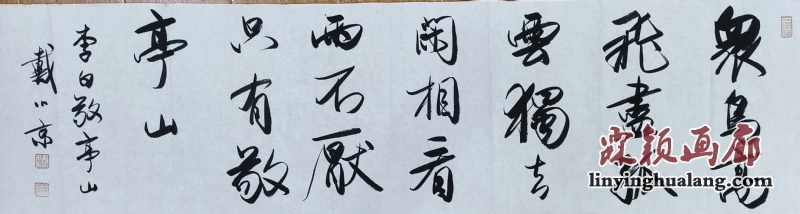 衆鳥高
飛盡孤
雲獨去
閑相看
兩不厭
只有敬
亭山
李白敬亭山
戴小京
霖颖画廊
linyinghualang.com